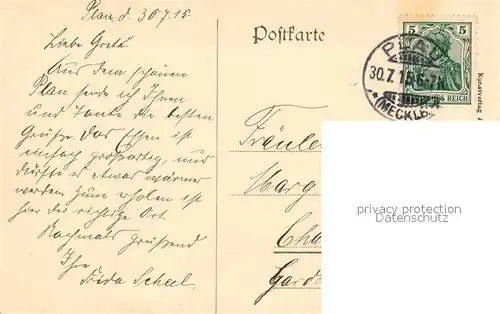 Plau, d. 30.7.15.
Liebe Grete!
Aus dem schönen
Plau sende ich Ihnen
und Tante die besten
Grüße. Das Essen ist
einfach großartig, nur
dürfte es etwas wärmer
werden. Zum erholen ist
hier der richtige Ort.
Nochmals grüßend
Ihre
Frida Scheel.
Postkarte
5 5
REICH
PLAU
30.7.15.6-7
(MECKLB)
Kunstverlag
Fräule
Marg
Cha
Garde
privacy protection
Datenschutz